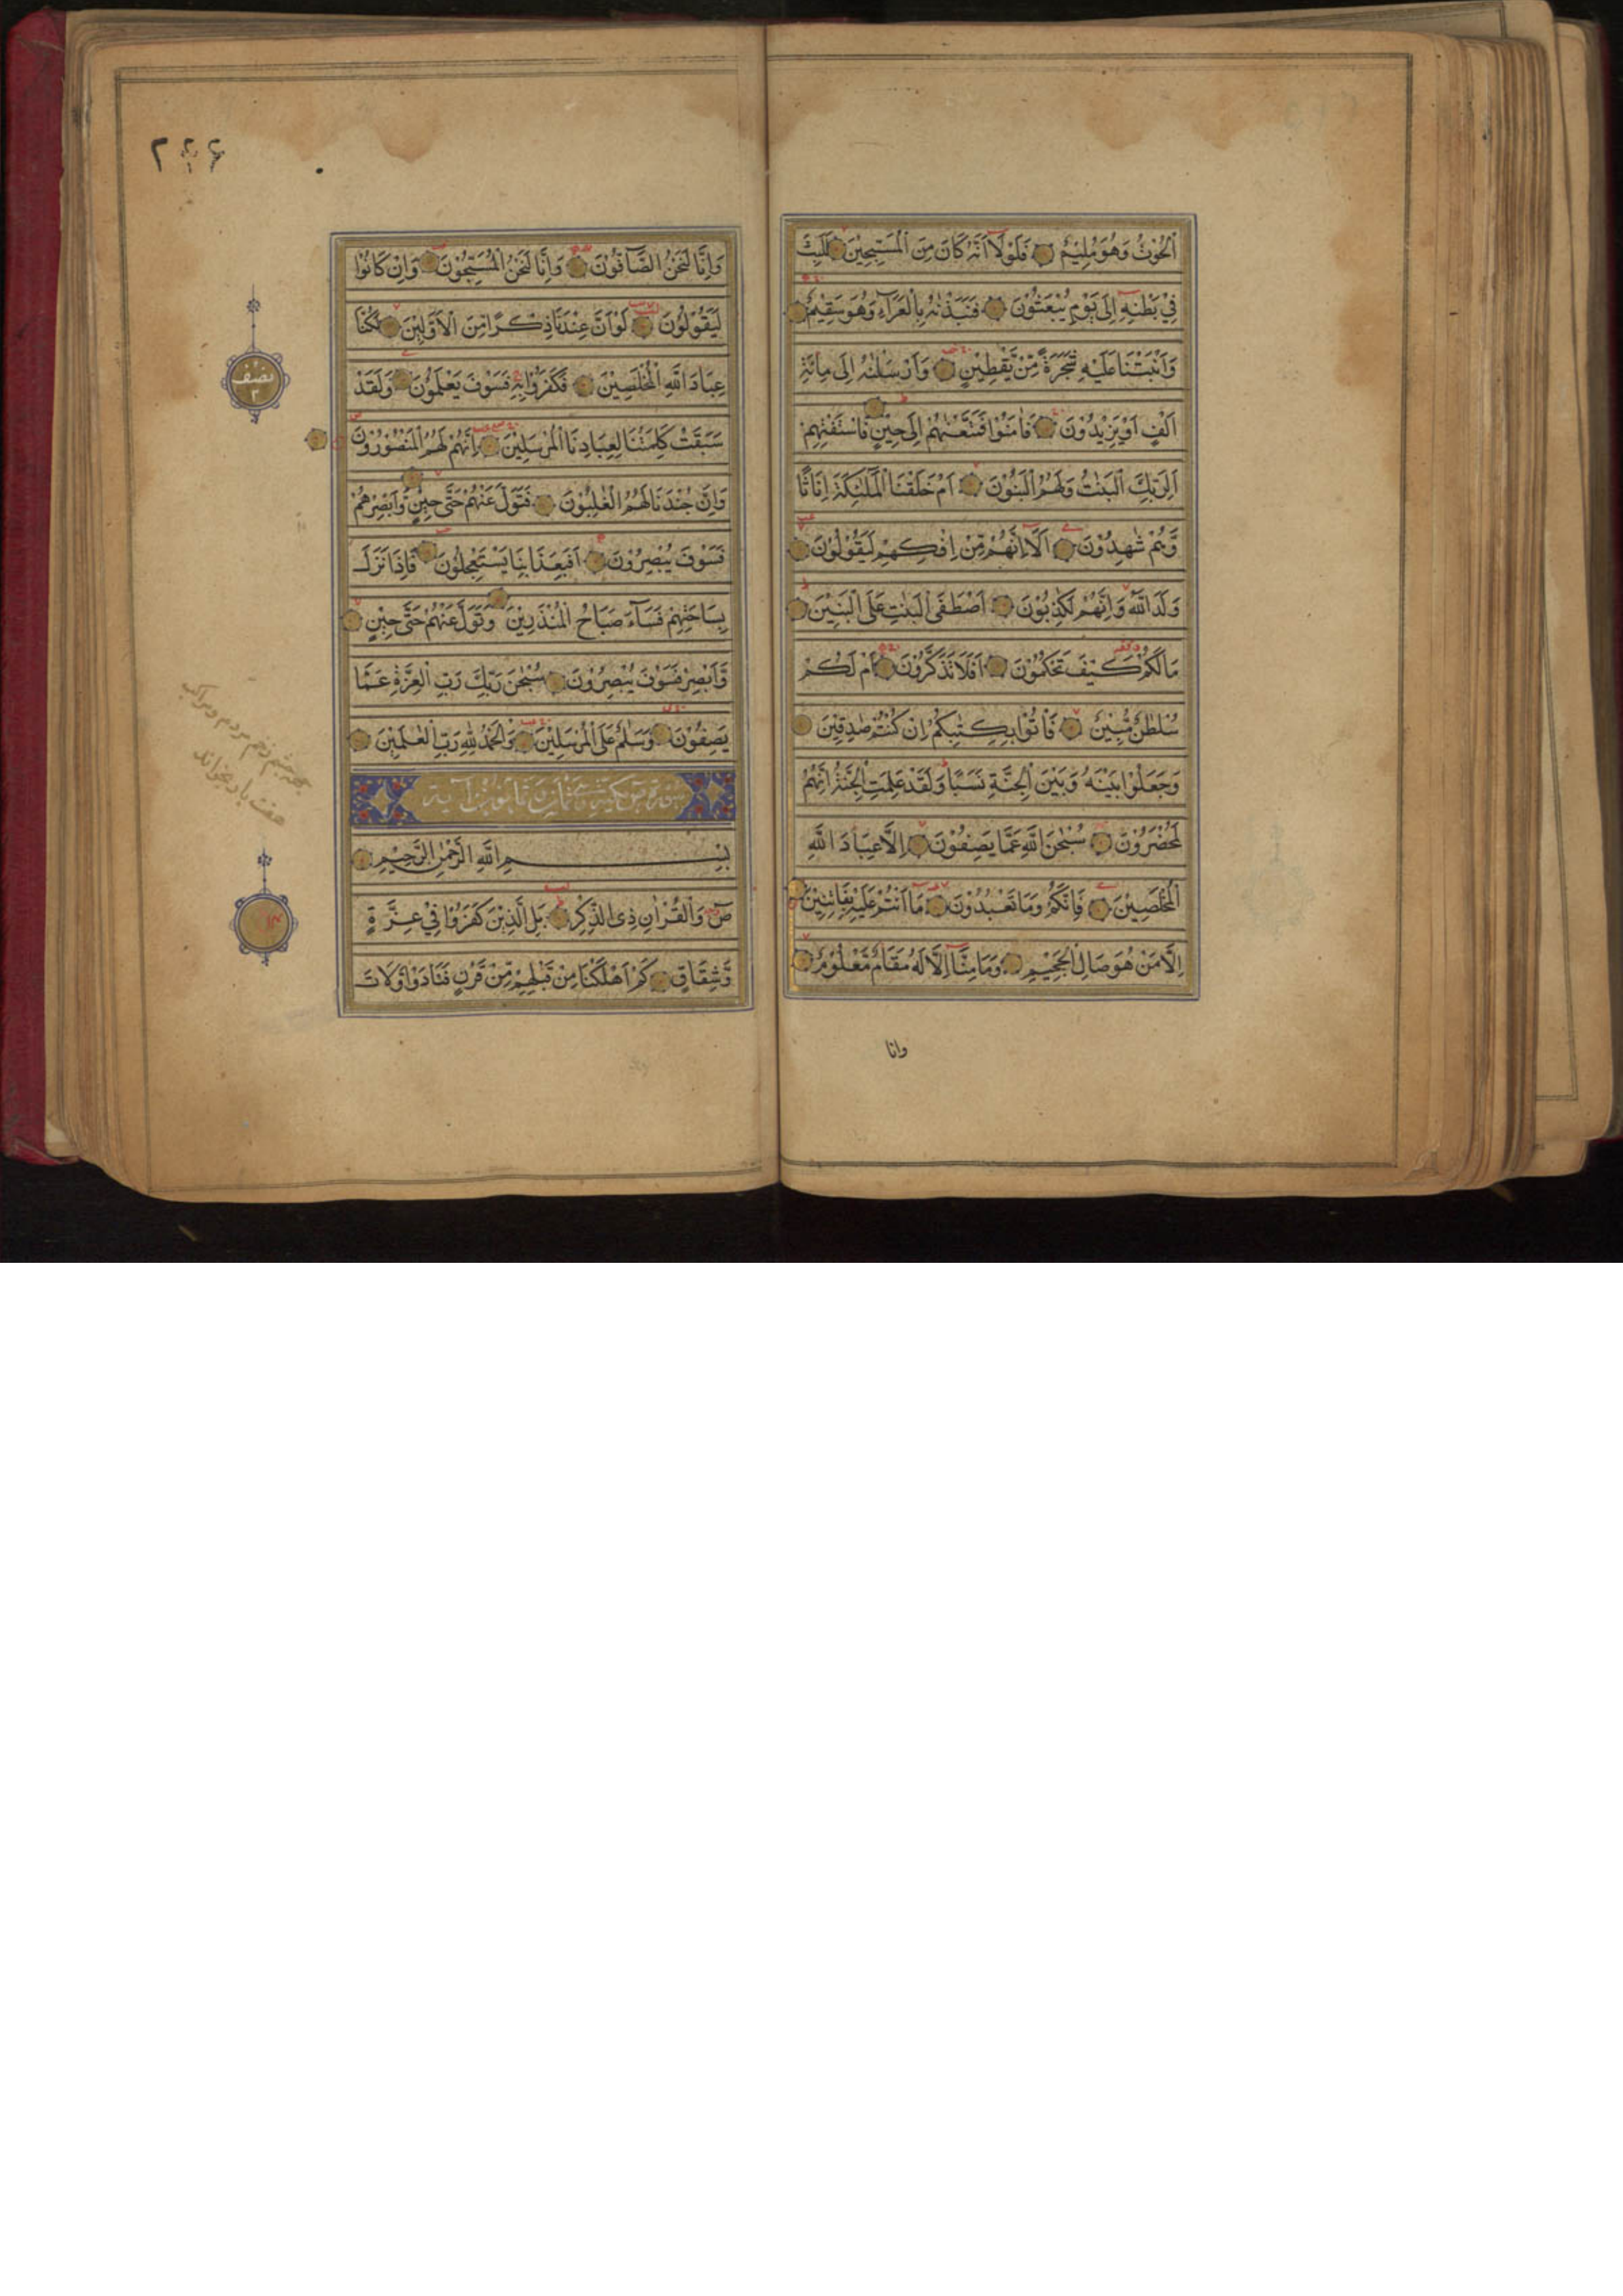 الْحُوتُ وَهُوَ مُلِيْمٌ فَلَوْلَا اَنَّهُ كَانَ مِنَ الْمُسَبِّحِيْنَ لَلَبِثَ
فِيْ بَطْنِهٖ اِلٰى يَوْمِ يُبْعَثُوْنَ فَنَبَذْنٰهُ بِالْعَرَآءِ وَهُوَ سَقِيْمٌ
وَاَنْبَتْنَا عَلَيْهِ شَجَرَةً مِّنْ يَّقْطِيْنٍ وَاَرْسَلْنٰهُ اِلٰى مِائَةِ
اَلْفٍ اَوْ يَزِيْدُوْنَ فَاٰمَنُوْا فَمَتَّعْنٰهُمْ اِلٰى حِيْنٍ فَاسْتَفْتِهِمْ
اَلِرَبِّكَ الْبَنٰتُ وَلَهُمُ الْبَنُوْنَ اَمْ خَلَقْنَا الْمَلٰٓئِكَةَ اِنَاثًا
وَّهُمْ شٰهِدُوْنَ اَلَآ اِنَّهُمْ مِّنْ اِفْكِهِمْ لَيَقُوْلُوْنَ
وَلَدَ اللّٰهُ وَاِنَّهُمْ لَكٰذِبُوْنَ اَصْطَفَى الْبَنٰتِ عَلَى الْبَنِيْنَ
مَا لَكُمْ كَيْفَ تَحْكُمُوْنَ اَفَلَا تَذَكَّرُوْنَ اَمْ لَكُمْ
سُلْطٰنٌ مُّبِيْنٌ فَأْتُوْا بِكِتٰبِكُمْ اِنْ كُنْتُمْ صٰدِقِيْنَ
وَجَعَلُوْا بَيْنَهٗ وَبَيْنَ الْجِنَّةِ نَسَبًا وَلَقَدْ عَلِمَتِ الْجِنَّةُ اِنَّهُمْ
لَمُحْضَرُوْنَ سُبْحٰنَ اللّٰهِ عَمَّا يَصِفُوْنَ اِلَّا عِبَادَ اللّٰهِ
الْمُخْلَصِيْنَ فَاِنَّكُمْ وَمَا تَعْبُدُوْنَ مَآ اَنْتُمْ عَلَيْهِ بِفَاتِنِيْنَ
اِلَّا مَنْ هُوَ صَالِ الْجَحِيْمِ وَمَا مِنَّآ اِلَّا لَهٗ مَقَامٌ مَّعْلُوْمٌ
وانا
وَاِنَّا لَنَحْنُ الصَّآفُّوْنَ وَاِنَّا لَنَحْنُ الْمُسَبِّحُوْنَ وَاِنْ كَانُوْا
لَيَقُوْلُوْنَ لَوْ اَنَّ عِنْدَنَا ذِكْرًا مِنَ الْاَوَّلِيْنَ لَكُنَّا
عِبَادَ اللّٰهِ الْمُخْلَصِيْنَ فَكَفَرُوْا بِهٖ فَسَوْفَ يَعْلَمُوْنَ وَلَقَدْ
سَبَقَتْ كَلِمَتُنَا لِعِبَادِنَا الْمُرْسَلِيْنَ اِنَّهُمْ لَهُمُ الْمَنْصُوْرُوْنَ
وَاِنَّ جُنْدَنَا لَهُمُ الْغٰلِبُوْنَ فَتَوَلَّ عَنْهُمْ حَتّٰى حِيْنٍ وَاَبْصِرْهُمْ
فَسَوْفَ يُبْصِرُوْنَ اَفَبِعَذَابِنَا يَسْتَعْجِلُوْنَ فَاِذَا نَزَلَ
بِسَاحَتِهِمْ فَسَآءَ صَبَاحُ الْمُنْذَرِيْنَ وَتَوَلَّ عَنْهُمْ حَتّٰى حِيْنٍ
وَّاَبْصِرْ فَسَوْفَ يُبْصِرُوْنَ سُبْحٰنَ رَبِّكَ رَبِّ الْعِزَّةِ عَمَّا
يَصِفُوْنَ وَسَلٰمٌ عَلَى الْمُرْسَلِيْنَ وَالْحَمْدُ لِلّٰهِ رَبِّ الْعٰلَمِيْنَ
بِسْمِ اللّٰهِ الرَّحْمٰنِ الرَّحِيْمِ
صٓ وَالْقُرْاٰنِ ذِى الذِّكْرِ بَلِ الَّذِيْنَ كَفَرُوْا فِيْ عِزَّةٍ
وَّشِقَاقٍ كَمْ اَهْلَكْنَا مِنْ قَبْلِهِمْ مِّنْ قَرْنٍ فَنَادَوْا وَلَاتَ
نصف